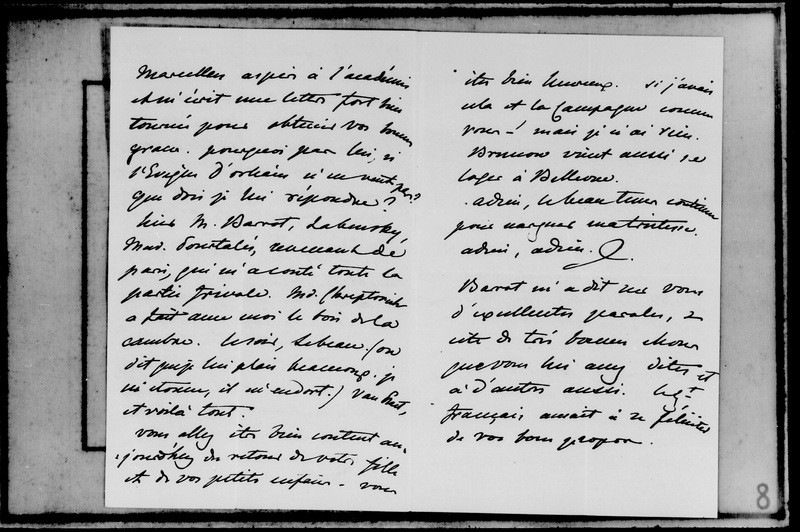 Marcellus aspire à l'académie
et m'écrit une lettre fort bien
tournée pour obtenir vos bonnes
graces. pourquoi pas lui, si
l'Evêque d'orléans n'en veut pas?
que dois je lui répondre?
hier M. Barrot, Labensky,
Mad. Pourtalès, revenant de
paris, qui m'a conté toute la
partie frivole. Md.
a fait avec moi le bois de la
cambre. le soir, Lebeau. (on
dit que je lui plais beaucoup. je
m'étonne, il m'endort.) Van Praet,
et voilà tout.
vous allez être bien content au-
-jourd'hui du retour de votre fille
et de vos petits enfans - vous
êtes bien heureux. si j'avais
cela et la Campagne comme
vous - ! mais je n'ai rien.
Brunnow vient aussi se
loger à Bellevue.
adieu, le beau tems continue
pour narguer ma tristesse.
adieu, adieu.
Barrot m'a dit de vous
d'excellentes paroles, &
cité de très bonnes choses
que vous lui avez dites et
à d'autres aussi. le gt
français aurait à se féliciter
de vos bons propos.
8